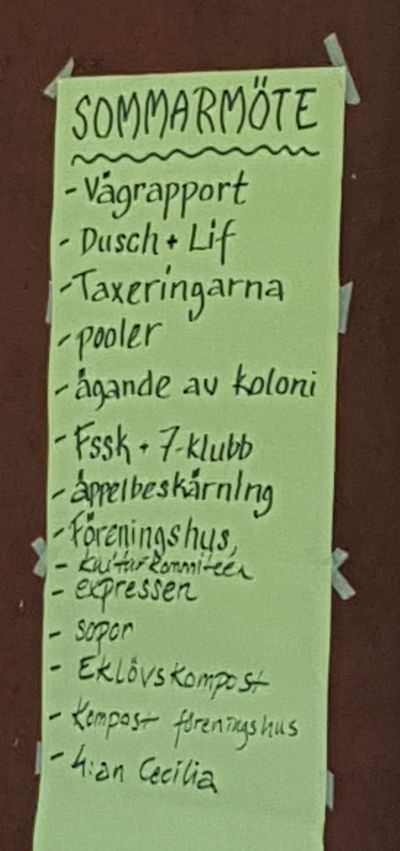 SOMMARMÖTE
- Vägrapport
- Dusch + Lif
- Taxeringarna
- pooler
- ägande av koloni
- Fssk + 7-klubb
- äppelbeskärning
- Föreningshus,
- kulturkommiteen
- expressen
- sopor
- Eklövskompost
- kompost föreningshus
- 4:an Cecilia